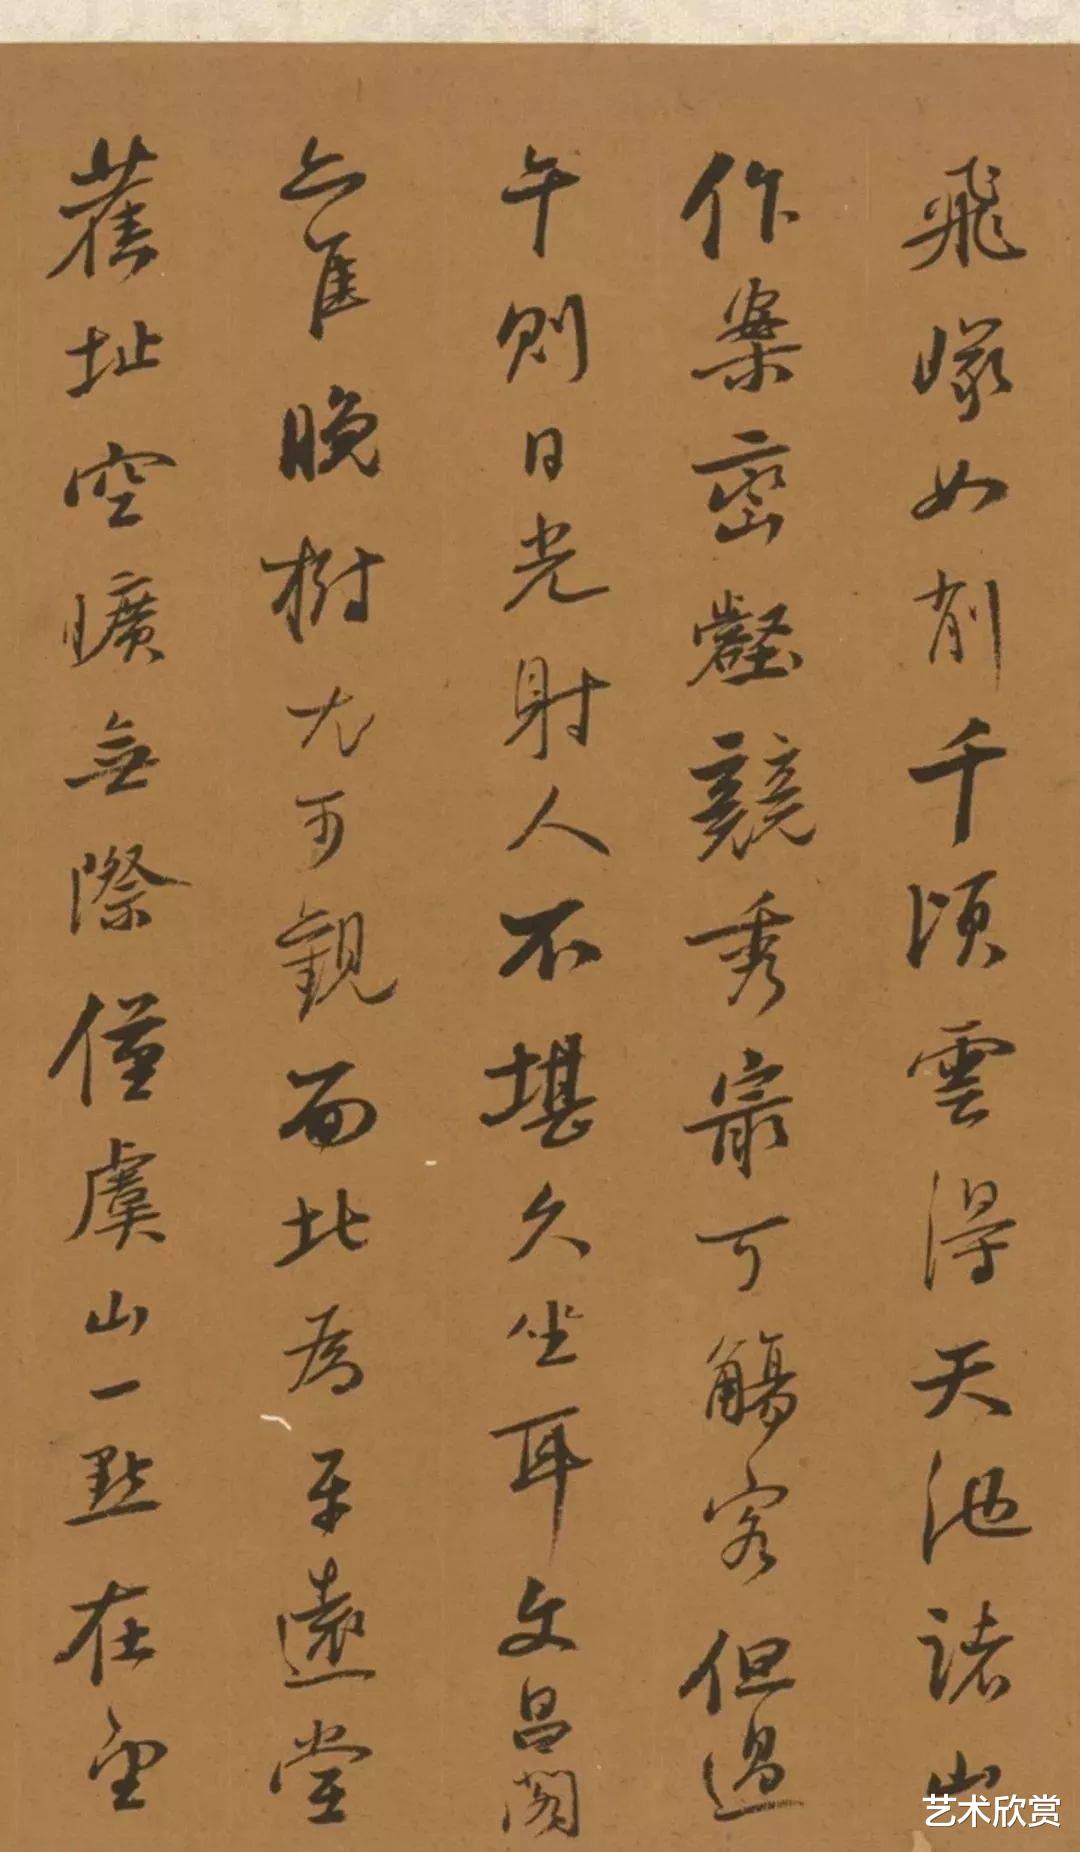 飛如削千頃雲得天池諸山
作案巒壑競秀最可觴客但過
午則日光射人不堪久坐耳文昌閣
亦佳晚樹尤可觀面北為平遠堂
舊址空曠無際僅虞山一點在望
艺术欣赏